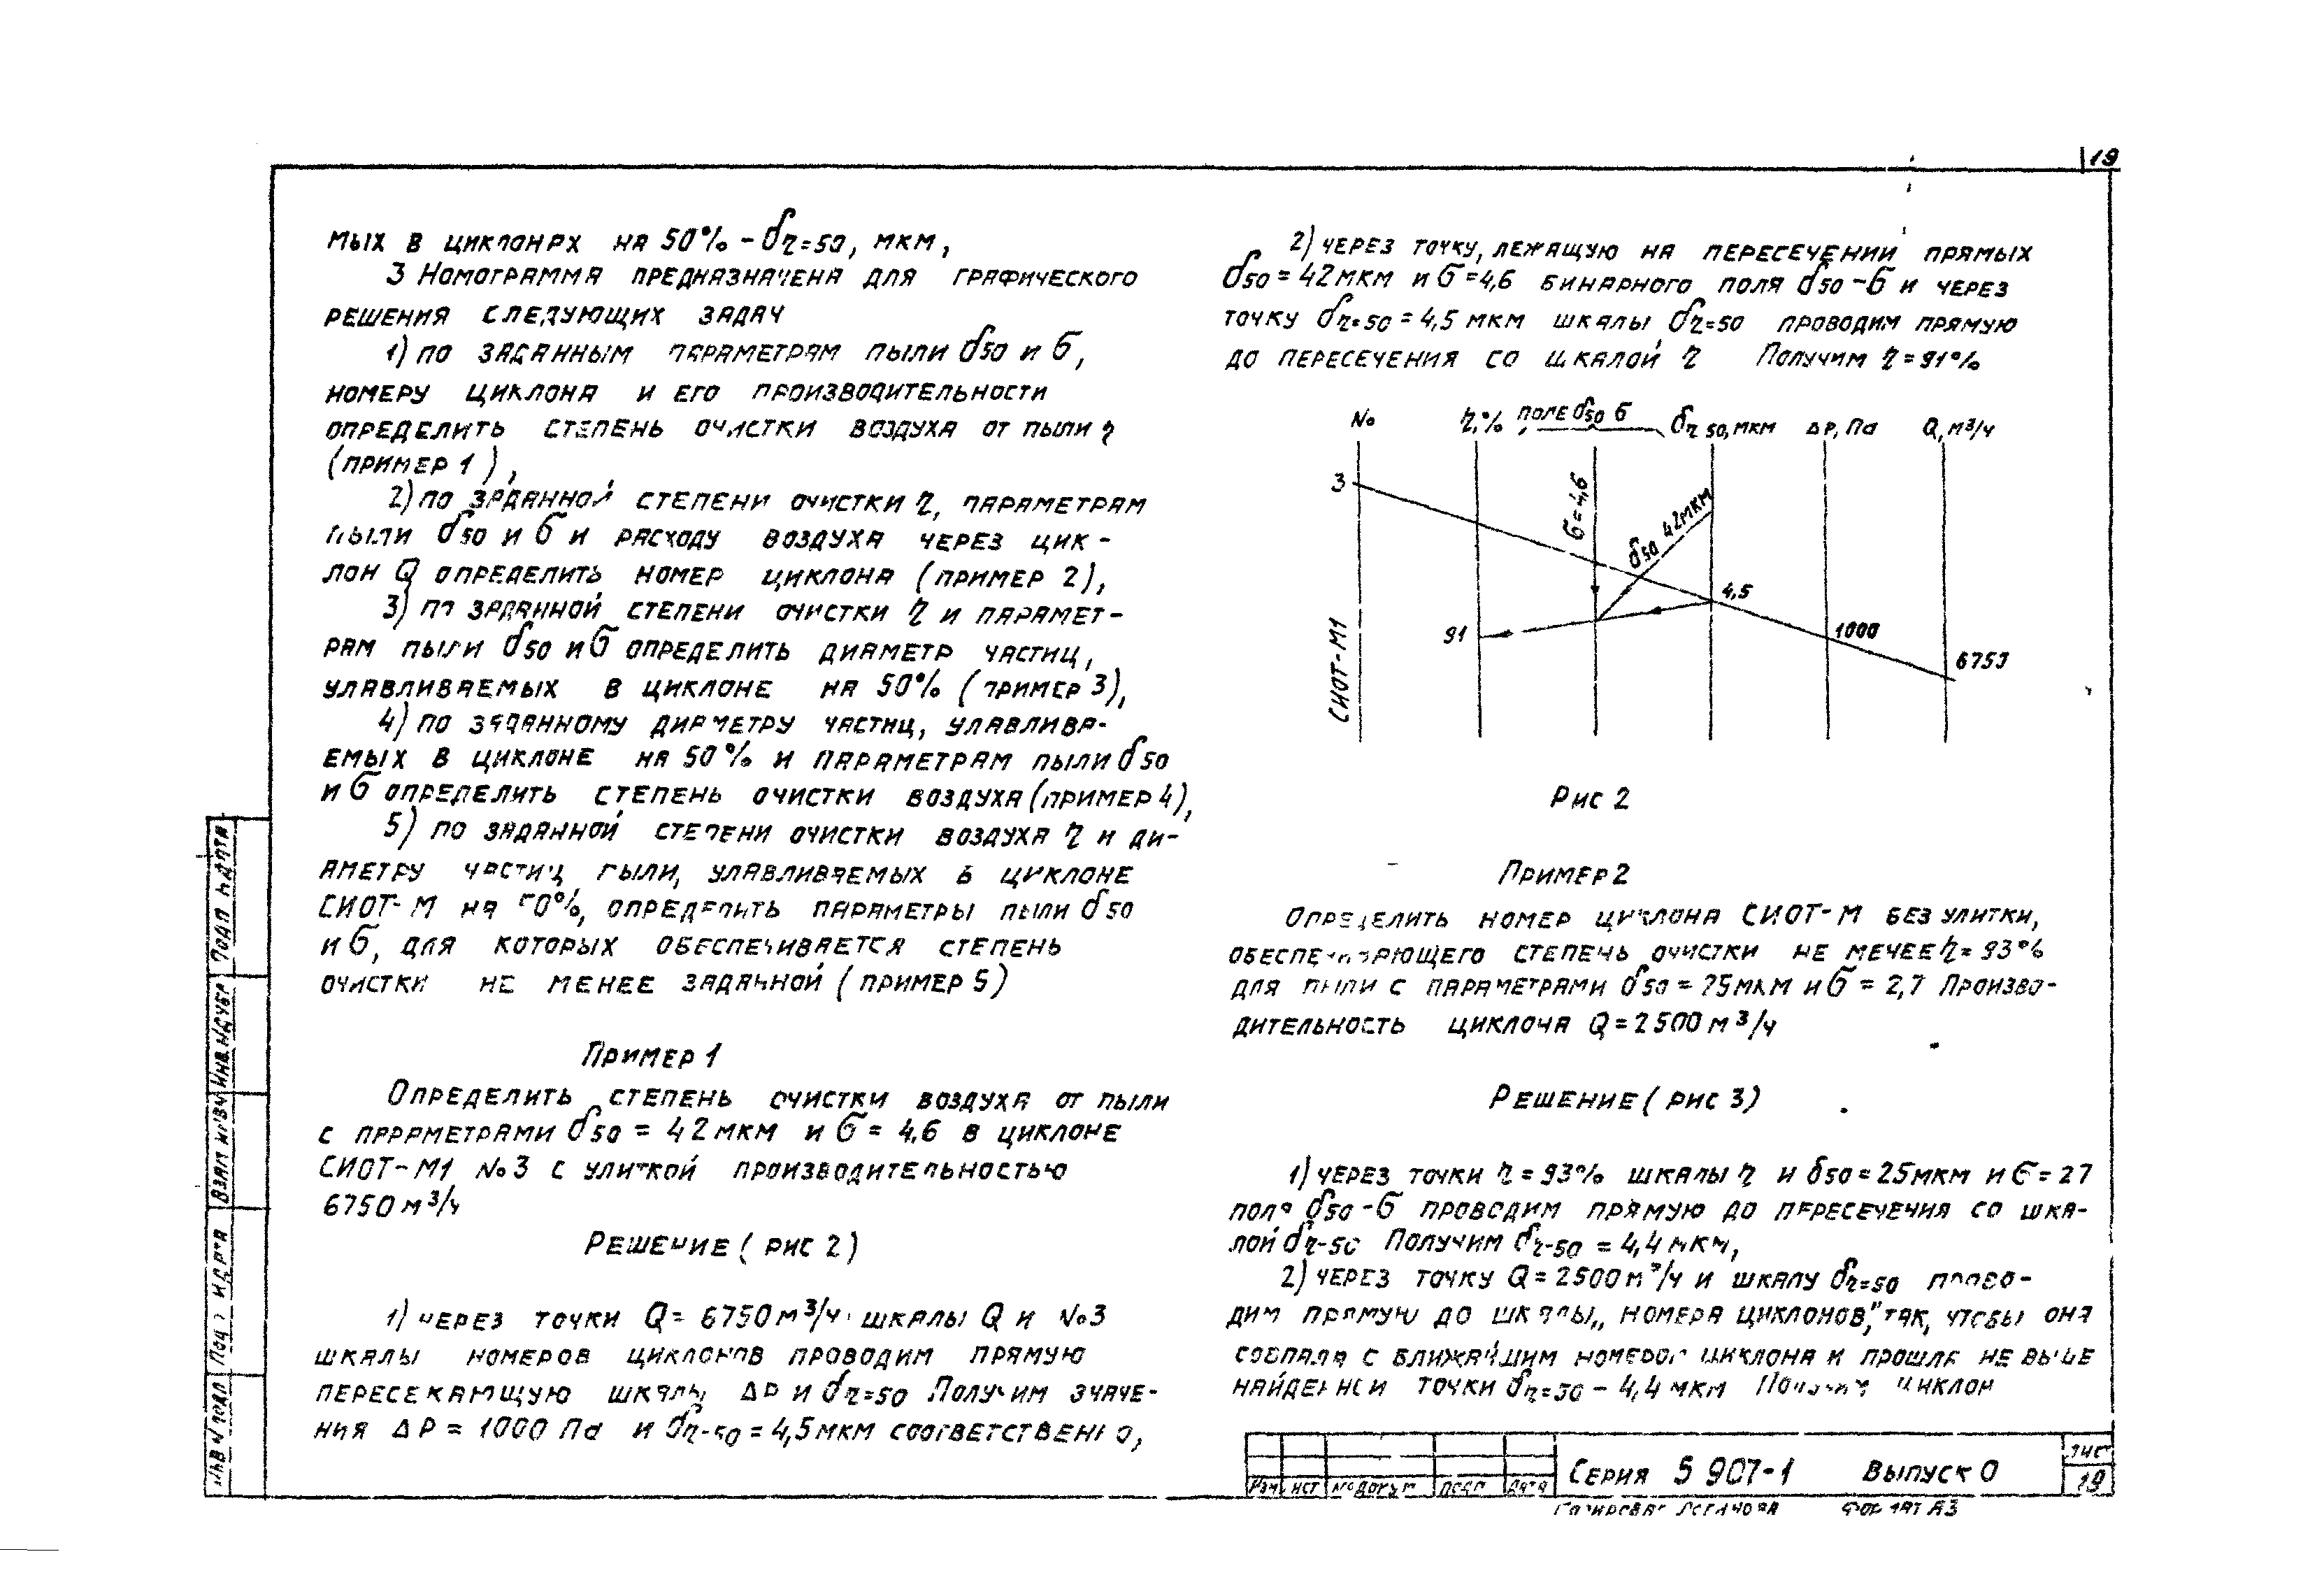 19
мых в циклонах на 50% – δη=50, мкм,
3 Номограмма предназначена для графического
решения следующих задач
1) по заданным параметрам пыли δ50 и б,
номеру циклона и его производительности
определить степень очистки воздуха от пыли η
(пример 1),
2) по заданной степени очистки η, параметрам
пыли δ50 и б и расходу воздуха через цик-
лон Q определить номер циклона (пример 2),
3) по заданной степени очистки η и парамет-
рам пыли δ50 и б определить диаметр частиц,
улавливаемых в циклоне на 50% (пример 3),
4) по заданному диаметру частиц, улавлива-
емых в циклоне на 50% и параметрам пыли δ50
и б определить степень очистки воздуха (пример 4),
5) по заданной степени очистки воздуха η и ди-
аметру частиц пыли, улавливаемых в циклоне
СИОТ-М на 50%, определить параметры пыли δ50
и б, для которых обеспечивается степень
очистки не менее заданной (пример 5)
Пример 1
Определить степень очистки воздуха от пыли
с параметрами δ50 = 42 мкм и б = 4,6 в циклоне
СИОТ-М1 №3 с улиткой производительностью
6750 м³/ч
Решение (рис 2)
1) через точки Q = 6750 м³/ч шкалы Q и №3
шкалы номеров циклонов проводим прямую
пересекающую шкалы ΔР и δη=50 Получим значе-
ния ΔР = 1000 Па и δη-50 = 4,5 мкм соответственно,
2) через точку, лежащую на пересечении прямых
δ50 = 42 мкм и б = 4,6 бинарного поля δ50 – б и через
точку δη=50 = 4,5 мкм шкалы δη=50 проводим прямую
до пересечения со шкалой η Получим η = 91%
№ η,% поле δ50 б δη 50, мкм ΔР, Па Q, м³/ч
3
б = 4,6
δ50 42мкм
4,5
91
1000
6753
СИОТ-М1
Рис 2
Пример 2
Определить номер циклона СИОТ-М без улитки,
обеспечивающего степень очистки не менее η = 93%
для пыли с параметрами δ50 = 25 мкм и б = 2,7 Произво-
дительность циклона Q = 2500 м³/ч
Решение (рис 3)
1) через точки η = 93% шкалы η и δ50 = 25 мкм и б = 27
поля δ50 – б проводим прямую до пересечения со шка-
лой δη-50 Получим δη-50 = 4,4 мкм,
2) через точку Q = 2500 м³/ч и шкалу δη=50 прово-
дим прямую до шкалы „номера циклонов", так, чтобы она
совпала с ближайшим номером циклона и прошла не выше
найденной точки δη=50 – 4,4 мкм циклон
Серия 5 907-1 Выпуск 0
Лис
19
Изм Лист № докум Подп Дата
Формат А3
Подп и дата
Инв № дубл
Взам инв №
Подп и дата
Инв № подл